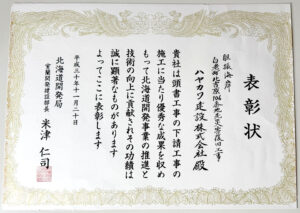 表彰状
胆振海岸
白老町北吉原106番地先災害復旧工事
ハヤカワ建設株式会社 殿
貴社は頭書工事の下請工事の
施工に当たり優秀な成果を収め
もって北海道開発事業の推進と
技術の向上に貢献されその功績は
誠に顕著なものがあります
よってここに表彰します
平成三十年十一月二十日
北海道開発局
室蘭開発建設部長 米津仁司